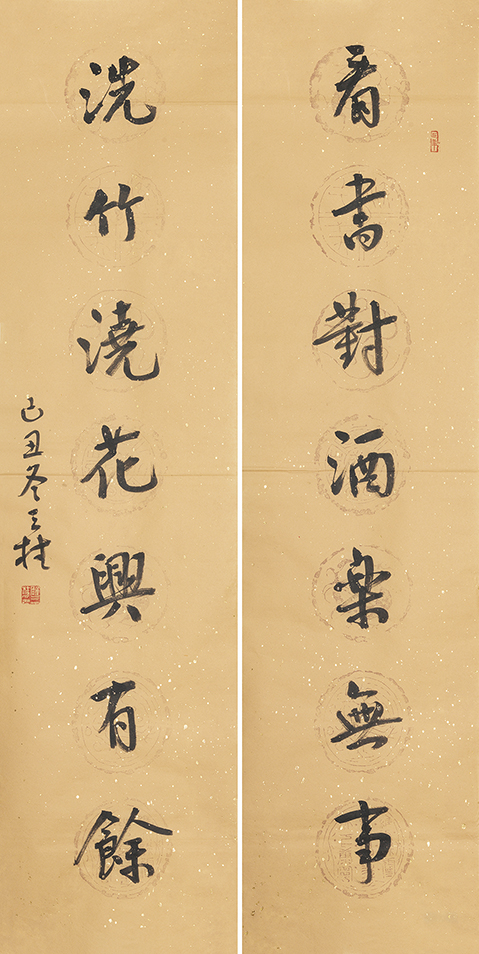 看書對酒樂無事
洗竹澆花興有餘
己丑冬天柱